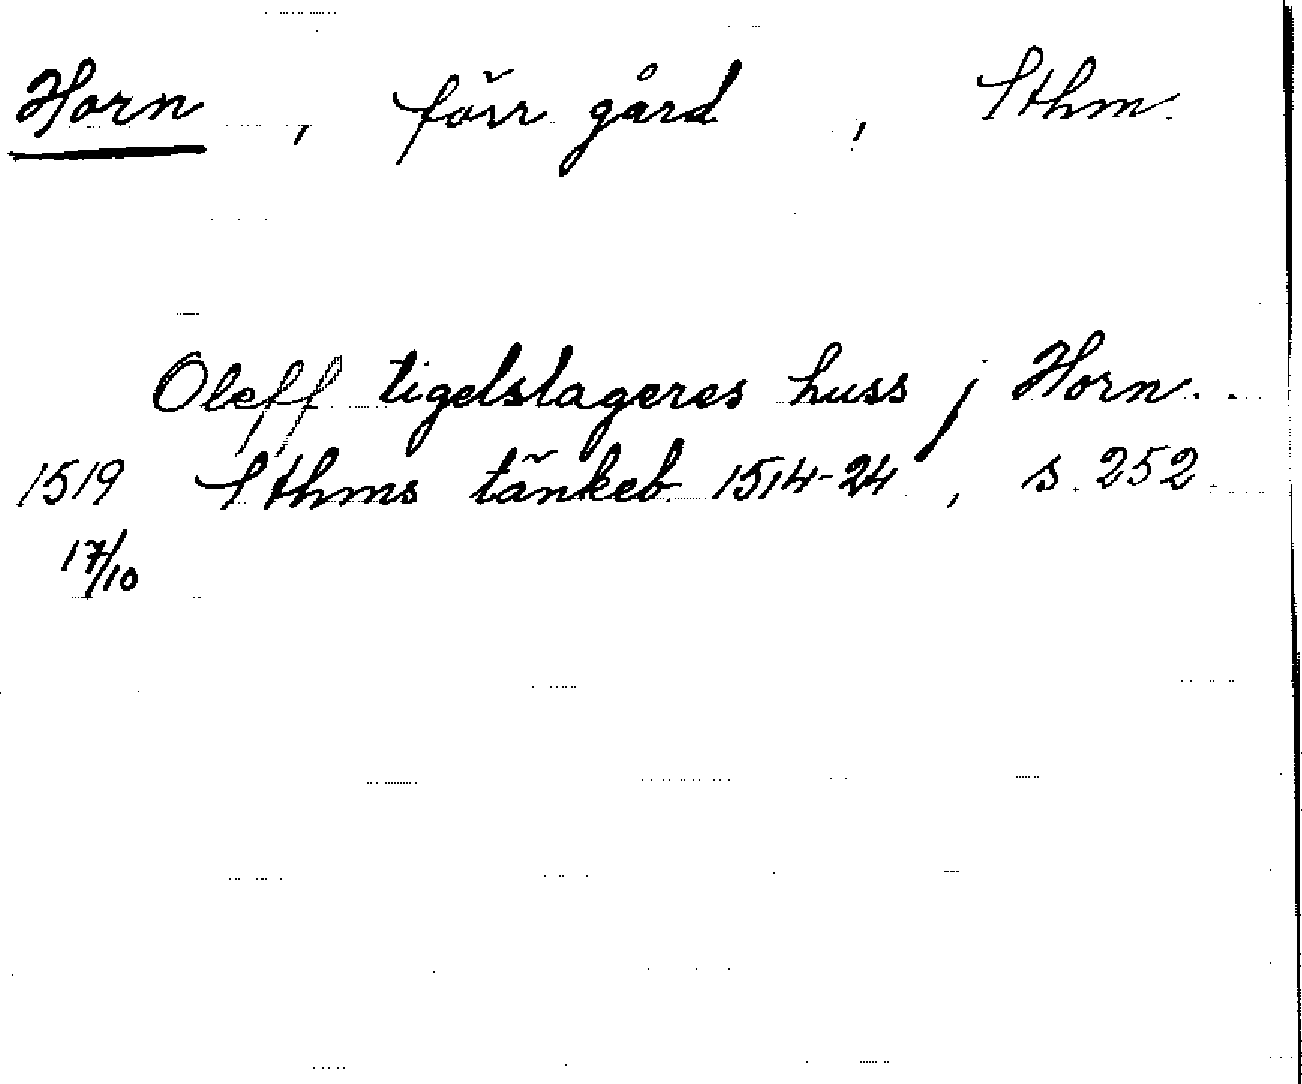 Horn, förr gård, Sthm.
Oleff tigelslageres huss j Horn..
1519 Sthms tänkeb. 1514-24, s. 252
17/10